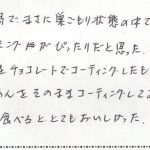 場で、まさに巣ごもり状態の中で
ミングがぴったりだと思った。
をチョコレートでコーティングしたも
めんをそのままコーティングしてる
食べるととてもおいしかった。